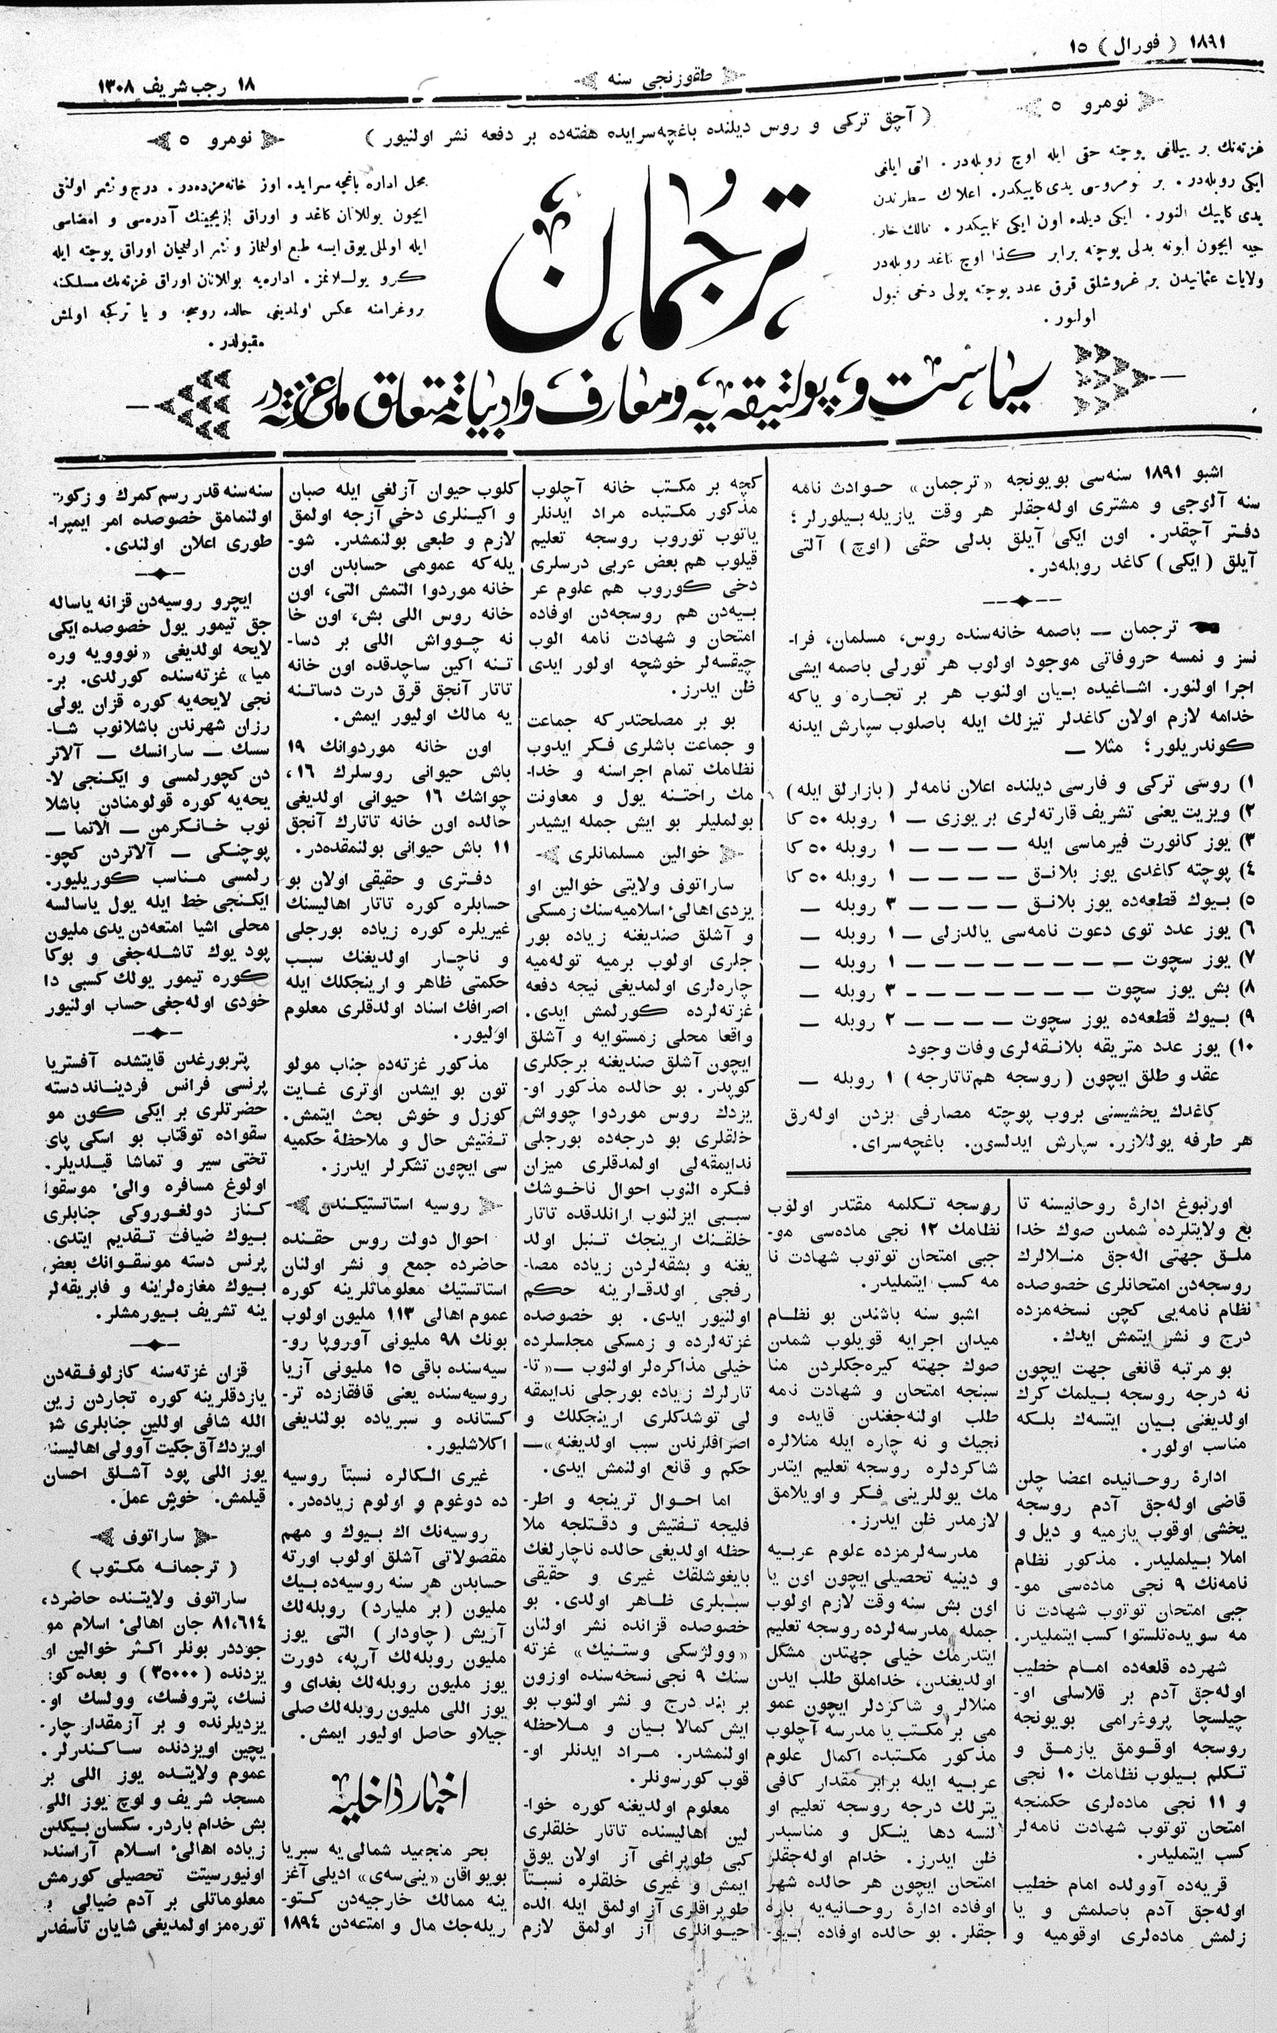 ١٨٩١ ( فورال ) ١٥
طقوزنجی سنه
١٨ رجب شریف ١٣٠٨
نومرو ٥
( آچق ترکی و روس دیلنده باغچه‌سرایده هفته‌ده بر دفعه نشر اولنیور )
نومرو ٥
ترجمان
سیاست و پولتیقه‌یه و معارف و ادبیاته متعلق ملی غزته‌در
اشبو ١٨٩١ سنه‌سی بویونجه «ترجمان» حوادث نامه
سنه آلوجی و مشتری اوله‌جقلر هر وقت یازیله‌بیلورلر؛
دفتر آچقدر. اون ایکی آیلق بدلی حقی (اوچ) آلتی
آیلق (ایکی) کاغد روبله‌در.
ترجمان — باصمه خانه‌سنده روس، مسلمان، فرا-
نسز و نمسه حروفاتی موجود اولوب هر تورلی باصمه ایشی
اجرا اولنور. اشاغیده بیان اولنوب هر بر تجاره و یاکه
خدامه لازم اولان کاغدلر تیزلك ایله باصلوب سپارش ایدنه
کوندریلور؛ مثلا —
١) روسی ترکی و فارسی دیلنده اعلان نامه‌لر (بازارلق ایله)
٢) ویزیت یعنی تشریف قارته‌لری بر یوزی — ١ روبله ٥٠ کا
٣) یوز کانورت فیرماسی ایله — — — — ١ روبله ٥٠ کا
٤) پوچته کاغدی یوز بلانق — — — — ١ روبله ٥٠ کا
٥) بیوك قطعه‌ده یوز بلانق — — — — ٣ روبله —
٦) یوز عدد توی دعوت نامه‌سی یالدزلی — ١ روبله —
٧) یوز سچوت — — — — — — — ١ روبله —
٨) بش یوز سچوت — — — — — — ٣ روبله —
٩) بیوك قطعه‌ده یوز سچوت — — — — ٢ روبله —
١٠) یوز عدد متریقه بلانقه‌لری وفات وجود
عقد و طلق ایچون (روسجه هم تاتارجه) ١ روبله —
کاغدك یخشیسنی بروب پوچته مصارفی بزدن اوله‌رق
هر طرفه یوللازر. سپارش ایدلسون. باغچه‌سرای.
اورنبوغ ادارۀ روحانیسنه تا
بع ولایتلرده شمدن صوك خدا
ملق جهتی اله‌جق منلالرك
روسجه‌دن امتحانلری خصوصده
نظام نامه‌یی کچن نسخه‌مزده
درج و نشر ایتمش ایدك.
بو مرتبه قانغی جهت ایچون
نه درجه روسجه بیلمك کرك
اولدیغنی بیان ایتسه‌ك بلکه
مناسب اولور.
ادارۀ روحانیده اعضا چلن
قاضی اوله‌جق آدم روسجه
یخشی اوقوب یازمیه و دیل و
املا بیلملیدر. مذکور نظام
نامه‌نك ٩ نجی ماده‌سی مو-
جبی امتحان توتوب شهادت نا
مه سویده‌تلستوا کسب ایتملیدر.
شهرده قلعه‌ده امام خطیب
اوله‌جق آدم بر قلاسلی او-
چیلسچا پروغرامی بویونجه
روسجه اوقومق یازمق و
تکلم بیلوب نظامك ١٠ نجی
و ١١ نجی ماده‌لری حکمنجه
امتحان توتوب شهادت نامه‌لر
کسب ایتملیدر.
قریه‌ده آوولده امام خطیب
اوله‌جق آدم باصلمش و یا
زلمش ماده‌لری اوقومیه و
روسجه تکلمه مقتدر اولوب
نظامك ١٢ نجی ماده‌سی مو-
جبی امتحان توتوب شهادت نا
مه کسب ایتملیدر.
اشبو سنه باشندن بو نظام
میدان اجرایه قویلوب شمدن
صوك جهته کیره‌جکلردن منا
سبنجه امتحان و شهادت نامه
طلب اولنه‌جغندن قایده و
نجیك و نه چاره ایله منلالره
شاکردلره روسجه تعلیم ایتدر
مك یوللرینی فکر و اویلامق
لازمدر ظن ایدرز.
مدرسه‌لرمزده علوم عربیه
و دینیه تحصیلی ایچون اون یا
اون بش سنه وقت لازم اولوب
جمله مدرسه‌لرده روسجه تعلیم
ایتدرمك خیلی جهتدن مشکل
اولدیغندن، خداملق طلب ایدن
منلالر و شاکردلر ایچون عمو
می بر مکتب یا مدرسه آچلوب
مذکور مکتبده اکمال علوم
عربیه ایله برابر مقدار کافی
یترلك درجه روسجه تعلیم او
لنسه دها ینکل و مناسبدر
ظن ایدرز. خدام اوله‌جقلر
امتحان ایچون هر حالده شهر
اوفاده ادارۀ روحانیه‌یه باره
جقلر. بو حالده اوفاده بیو-
کچه بر مکتب خانه آچلوب
مذکور مکتبده مراد ایدنلر
یاتوب توروب روسجه تعلیم
قیلوب هم بعض عربی درسلری
دخی کوروب هم علوم عر
بیه‌دن هم روسجه‌دن اوفاده
امتحان و شهادت نامه الوب
چیقسه‌لر خوشچه اولور ایدی
ظن ایدرز.
بو بر مصلحتدر که جماعت
و جماعت باشلری فکر ایدوب
نظامك تمام اجراسنه و خدا-
مك راحتنه یول و معاونت
بولملیلر بو ایش جمله ایشیدر
خوالین مسلمانلری
ساراتوف ولایتی خوالین او
یزدی اهالیٔ اسلامیه‌سنك زمسکی
و آشلق صندیغنه زیاده بور
جلری اولوب برمیه توله‌میه
چاره‌لری اولمدیغی نیجه دفعه
غزته‌لرده کورلمش ایدی.
واقعا محلی زمستوایه و آشلق
ایچون آشلق صندیغنه برجکلری
کوپدر. بو حالده مذکور او-
یزدك روس موردوا چوواش
خلقلری بو درجه‌ده بورجلی
ندایمقه‌لی اولمدقلری میزان
فکره النوب احوال ناخوشك
سببی ایزلنوب ارانلدقده تاتار
خلقنك ارینجك تنبل اولد
یغنه و بشقه‌لردن زیاده مصا-
رفجی اولدقلرینه حکم
اولنیور ایدی. بو خصوصده
غزته‌لرده و زمسکی مجلسلرده
خیلی مذاکره‌لر اولنوب —«تا-
تارلرك زیاده بورجلی ندایمقه
لی توشدکلری ارینجکلك و
اصرافلرندن سبب اولدیغنه»—
حکم و قانع اولنمش ایدی.
اما احوال ترینجه و اطر-
فلیجه تفتیش و دقتلجه ملا
حظه اولدیغی حالده ناچارلغك
بایغوشلقك غیری و حقیقی
سببلری ظاهر اولدی. بو
خصوصده قزانده نشر اولنان
«وولژسکی وستنیك» غزته
سنك ٩ نجی نسخه‌سنده اوزون
بر بند درج و نشر اولنوب بو
ایش کمالا بیان و ملاحظه
اولنمشدر. مراد ایدنلر او-
قوب کورسونلر.
معلوم اولدیغنه کوره خوا-
لین اهالیسنده تاتار خلقلری
کبی طوپراغی آز اولان یوق
ایمش و غیری خلقلره نسبتاً
طوپراقلری آز اولمق ایله الده
حیوانلری آز اولمق لازم
کلوب حیوان آزلغی ایله صبان
و اکینلری دخی آزجه اولمق
لازم و طبعی بولنمشدر. شو-
یله که عمومی حسابدن اون
خانه موردوا التمش التی، اون
خانه روس اللی بش، اون خا
نه چوواش اللی بر دسا-
تنه اکین ساچدقده اون خانه
تاتار آنجق قرق درت دساتنه
یه مالك اولیور ایمش.
اون خانه موردوانك ١٩
باش حیوانی روسلرك ١٦،
چواشك ١٦ حیوانی اولدیغی
حالده اون خانه تاتارك آنجق
١١ باش حیوانی بولنمقده‌در.
دفتری و حقیقی اولان بو
حسابلره کوره تاتار اهالیسنك
غیریلره کوره زیاده بورجلی
و ناچار اولدیغنك سبب
حکمتی ظاهر و ارینجکلك ایله
اصرافك اسناد اولدقلری معلوم
اولیور.
مذکور غزته‌ده جناب مولو
تون بو ایشدن اوتری غایت
کوزل و خوش بحث ایتمش.
تفتیش حال و ملاحظۀ حکمیه
سی ایچون تشکرلر ایدرز.
روسیه استاتستیکندن
احوال دولت روس حقنده
حاضرده جمع و نشر اولنان
استاتستیك معلوماتلرینه کوره
عموم اهالی ١١٣ ملیون اولوب
بونك ٩٨ ملیونی آوروپا رو-
سیه‌سنده باقی ١٥ ملیونی آزیا
روسیه‌سنده یعنی قافقازده تر-
کستانده و سبریاده بولندیغی
اکلاشلیور.
غیری الکالره نسبتاً روسیه
ده دوغوم و اولوم زیاده‌در.
روسیه‌نك اك بیوك و مهم
مقصولاتی آشلق اولوب اورته
حسابدن هر سنه روسیه‌ده بیك
ملیون (بر ملیارد) روبله‌لك
آریش (چاودار) التی یوز
ملیون روبله‌لك آرپه، دورت
یوز ملیون روبله‌لك بغدای و
یوز اللی ملیون روبله‌لك صلی
جیلاو حاصل اولیور ایمش.
اخبار داخلیه
بحر منجمید شمالی‌یه سبریا
بویو اقان «ینی‌سه‌ی» ادیلی آغز
ینه ممالك خارجیه‌دن کتو-
ریله‌جك مال و امتعه‌دن ١٨٩٤
سنه‌سنه قدر رسم کمرك و زکوة
اولنمامق خصوصده امر ایمپرا-
طوری اعلان اولندی.
ایچرو روسیه‌دن قزانه یاساله
جق تیمور یول خصوصده ایکی
لایحه اولدیغی «نوویه وره
میا» غزته‌سنده کورلدی. بر-
نجی لایحه‌یه کوره قزان یولی
رزان شهرندن باشلانوب شا-
سسك — سارانسك — آلاتر
دن کچورلمسی و ایکنجی لا-
یحه‌یه کوره قولومنادن باشلا
نوب خانکرمن — الاتما —
پوچنکی — آلاتردن کچو-
رلمسی مناسب کوریلیور.
ایکنجی خط ایله یول یاسالسه
محلی اشیا امتعه‌دن یدی ملیون
پود یوك تاشله‌جغی و بوکا
کوره تیمور یولك کسبی دا
خودی اوله‌جغی حساب اولنیور
پتربورغدن قایتشده آفستریا
پرنسی فرانس فردیناند دسته
حضرتلری بر ایکی کون مو
سقواده توقتاب بو اسکی پای
تختی سیر و تماشا قیلدیلر.
اولوغ مسافره والیٔ موسقوا
کناز دولغوروکی جنابلری
بیوك ضیافت تقدیم ایتدی.
پرنس دسته موسقوانك بعض
بیوك مغازه‌لرینه و فابریقه‌لر
ینه تشریف بیورمشلر.
قزان غزته‌سنه کازلوفقه‌دن
یازدقلرینه کوره تجاردن زین
الله شافی اوللین جنابلری شو
اویزدك آق جکیت آوولی اهالیسنه
یوز اللی پود آشلق احسان
قیلمش. خوش عمل.
ساراتوف
( ترجمانه مکتوب )
ساراتوف ولایتنده حاضرده
٨١٬٦١٤ جان اهالیٔ اسلام مو
جوددر بونلر اکثر خوالین او
یزدنده (٣٥٠٠٠) و بعده کوز
نسك، پتروفسك، وولسك او-
یزدیلرنده و بر آز مقدار چار-
یچین اویزدنده ساکندرلر.
عموم ولایتده یوز اللی بر
مسجد شریف و اوچ یوز اللی
بش خدام باردر. سکسان بیکدن
زیاده اهالیٔ اسلام آراسنده
اونیورسیتت تحصیلی کورمش
معلوماتلی بر آدم ضیالی
توره‌مز اولمدیغی شایان تأسفدر